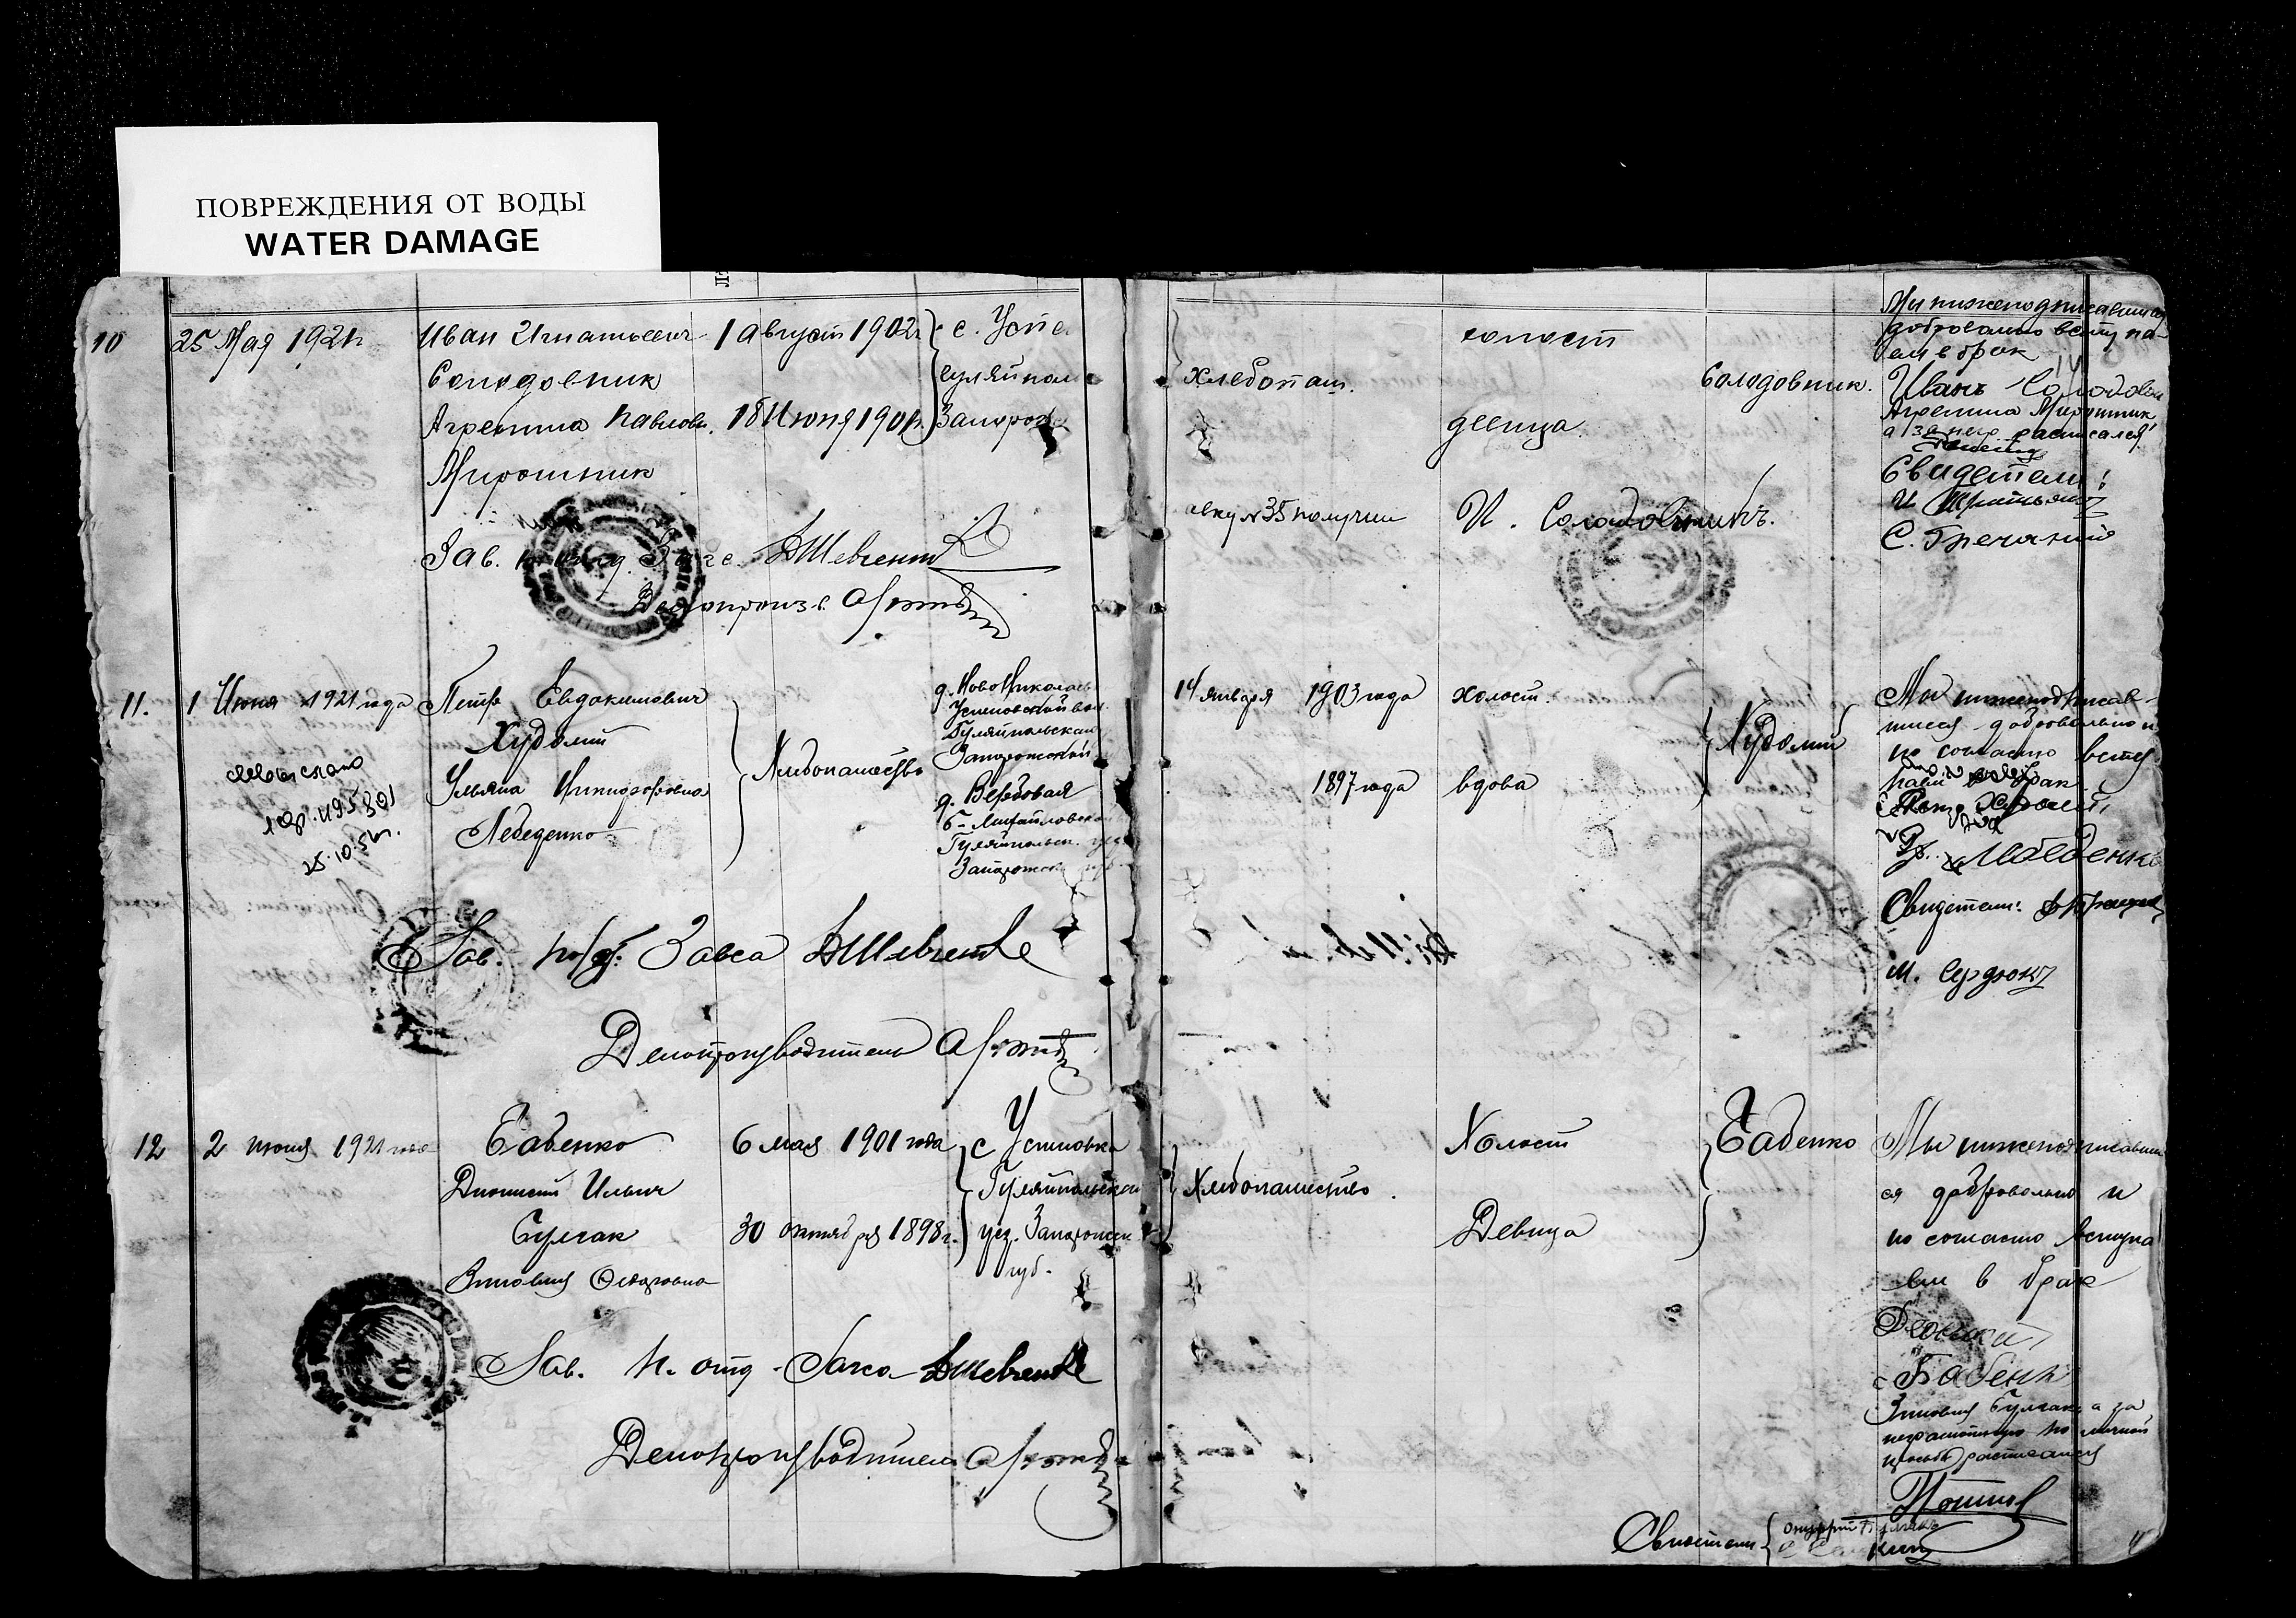 ПОВРЕЖДЕНИЯ ОТ ВОДЫ
WATER DAMAGE
10
25 Мая 1921 г.
Иван Игнатьевич
Солодовник
Агрепина Павловн.
Мирошник
1 Август 1902 г.
18 Июня 1901 г.
с. Успе
Гуляйпол
Запорож
Хлебопаш.
холост
девица.
Солодовник.
Мы нижеподписавшися
добровольно вступа-
ем в брак
Иванъ Солодовн
Агрепина Мирошник
а за нею расписался
Свидетели:
С. Гречаний
№ 35 получил
И. Солодовникъ.
Зав. Загс Шевченко
Делопроизв.
11.
1 Июня 1921 года
Петр Евдокимович
Худолий
Ульяна Никифоровна
Лебеденко
Хлебопашество
д. Ново Николаев
Успеновской вол.
Гуляйпольской
Запорожской
д. Вербовая
Б-Михайловской
Гуляйпольск. уезд
Запорожск губ.
14 января 1903 года
1897 года
холост.
вдова
Худолий
Мы нижеподписав-
шиеся добровольно и
по согласию всту
паем в брак
Лебеденко
Свидетели:
М. Сердюкъ
выслано
25.10.56 г.
Зав. Загса Шевченко
Делопроизводитель
12
2 июня 1921 года
Бабенко
Дионисий Ильич
Булгак
Зиновия Федоровна
6 мая 1901 года
30 октября 1898 г.
с Успеновка
Гуляйпольской
уез. Запорожск
губ.
Хлебопашество.
Холост
Девица
Бабенко
Мы нижеподписавши
ся добровольно и
по согласию вступа
ем в брак
Бабенк
Зиновия Булгак, а за
неграмотную по личной
просьбе расписался
Зав. п. отд. Загса Шевченко
Делопроизводитель
Свидетели